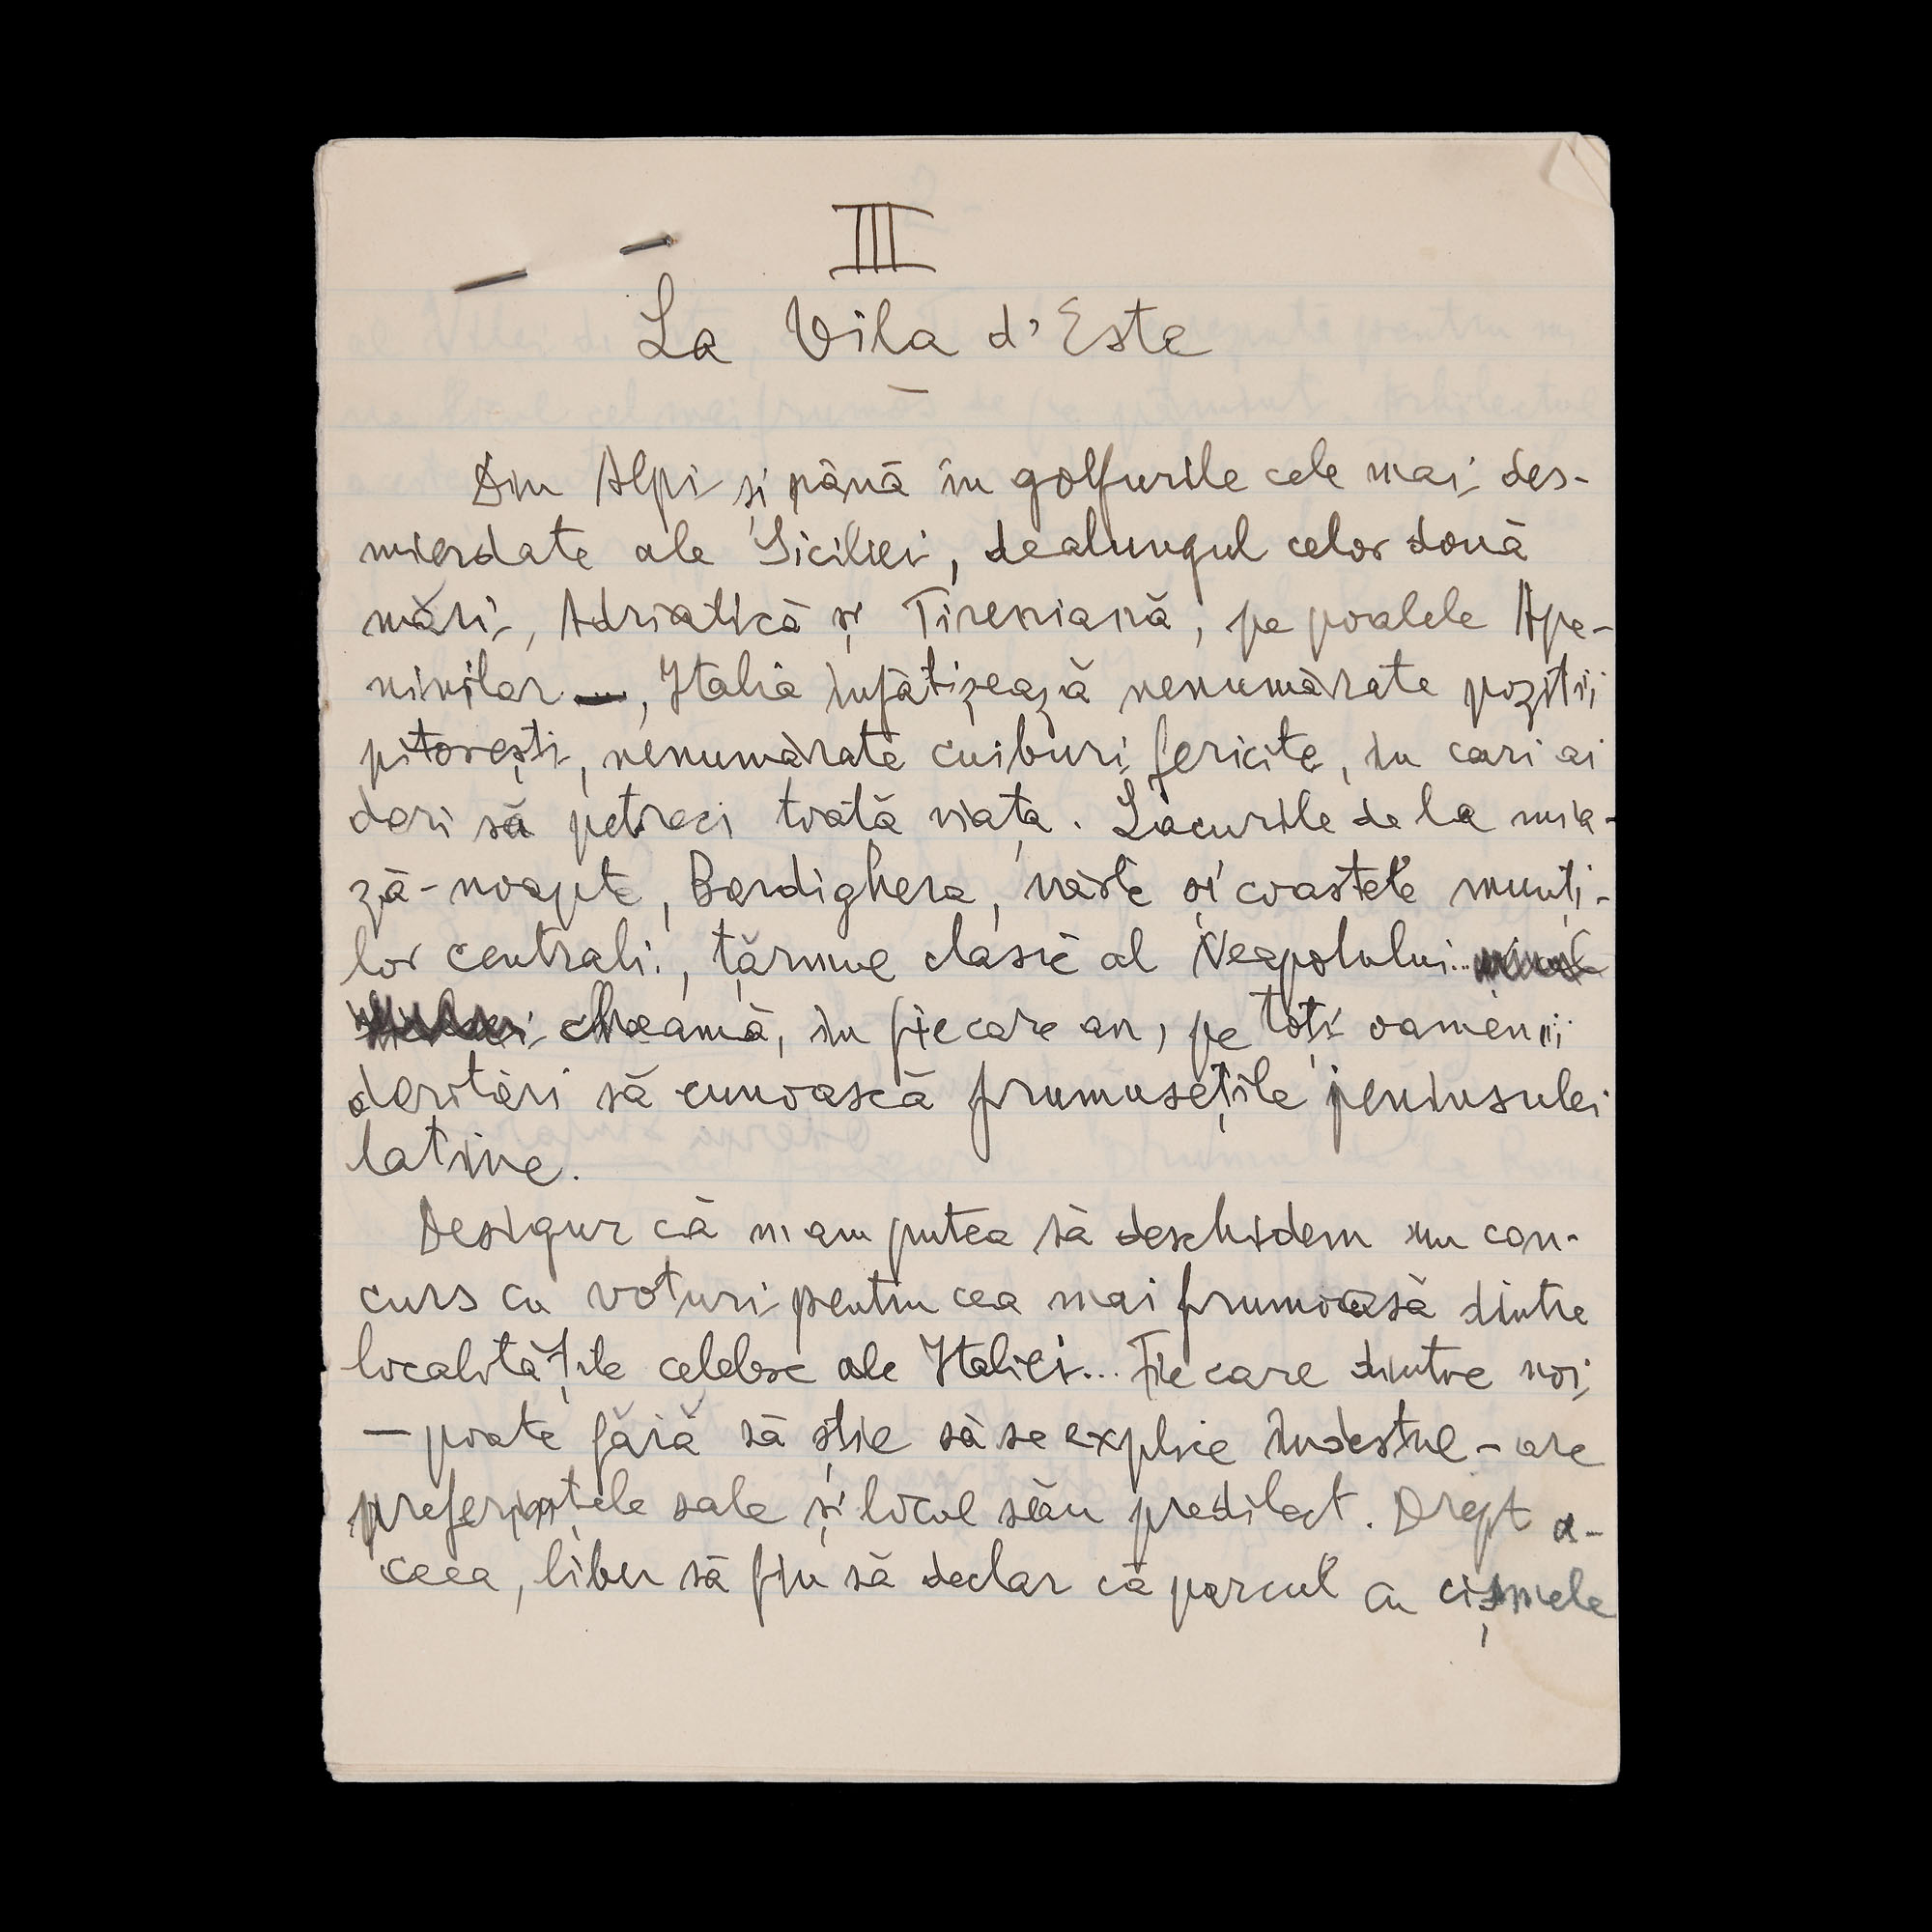 III
La Vila d'Este
Din Alpi și până în golfurile cele mai des-
mierdate ale Siciliei, dealungul celor două
mări, Adriatică și Tireniană, pe poalele Ape-
ninilor, Italia înfățișează nenumărate poziții
pitorești, nenumărate cuiburi fericite, în cari ai
dori să petreci toată viața. Lacurile de la mia-
ză-noapte, Bordighera, văile și coastele munți-
lor centrali, țărmul clasic al Neapolului..
cheamă, în fiecare an, pe toți oamenii
doritori să cunoască frumusețile peninsulei
latine.
Desigur că n'am putea să deschidem un con-
curs cu voturi pentru cea mai frumoasă dintre
localitățile celebre ale Italiei... Fiecare dintre noi
— poate fără să știe să se explice îndestul – are
preferințele sale și locul său predilect. Drept a-
ceea, liber să fiu să declar că parcul cu cișmele